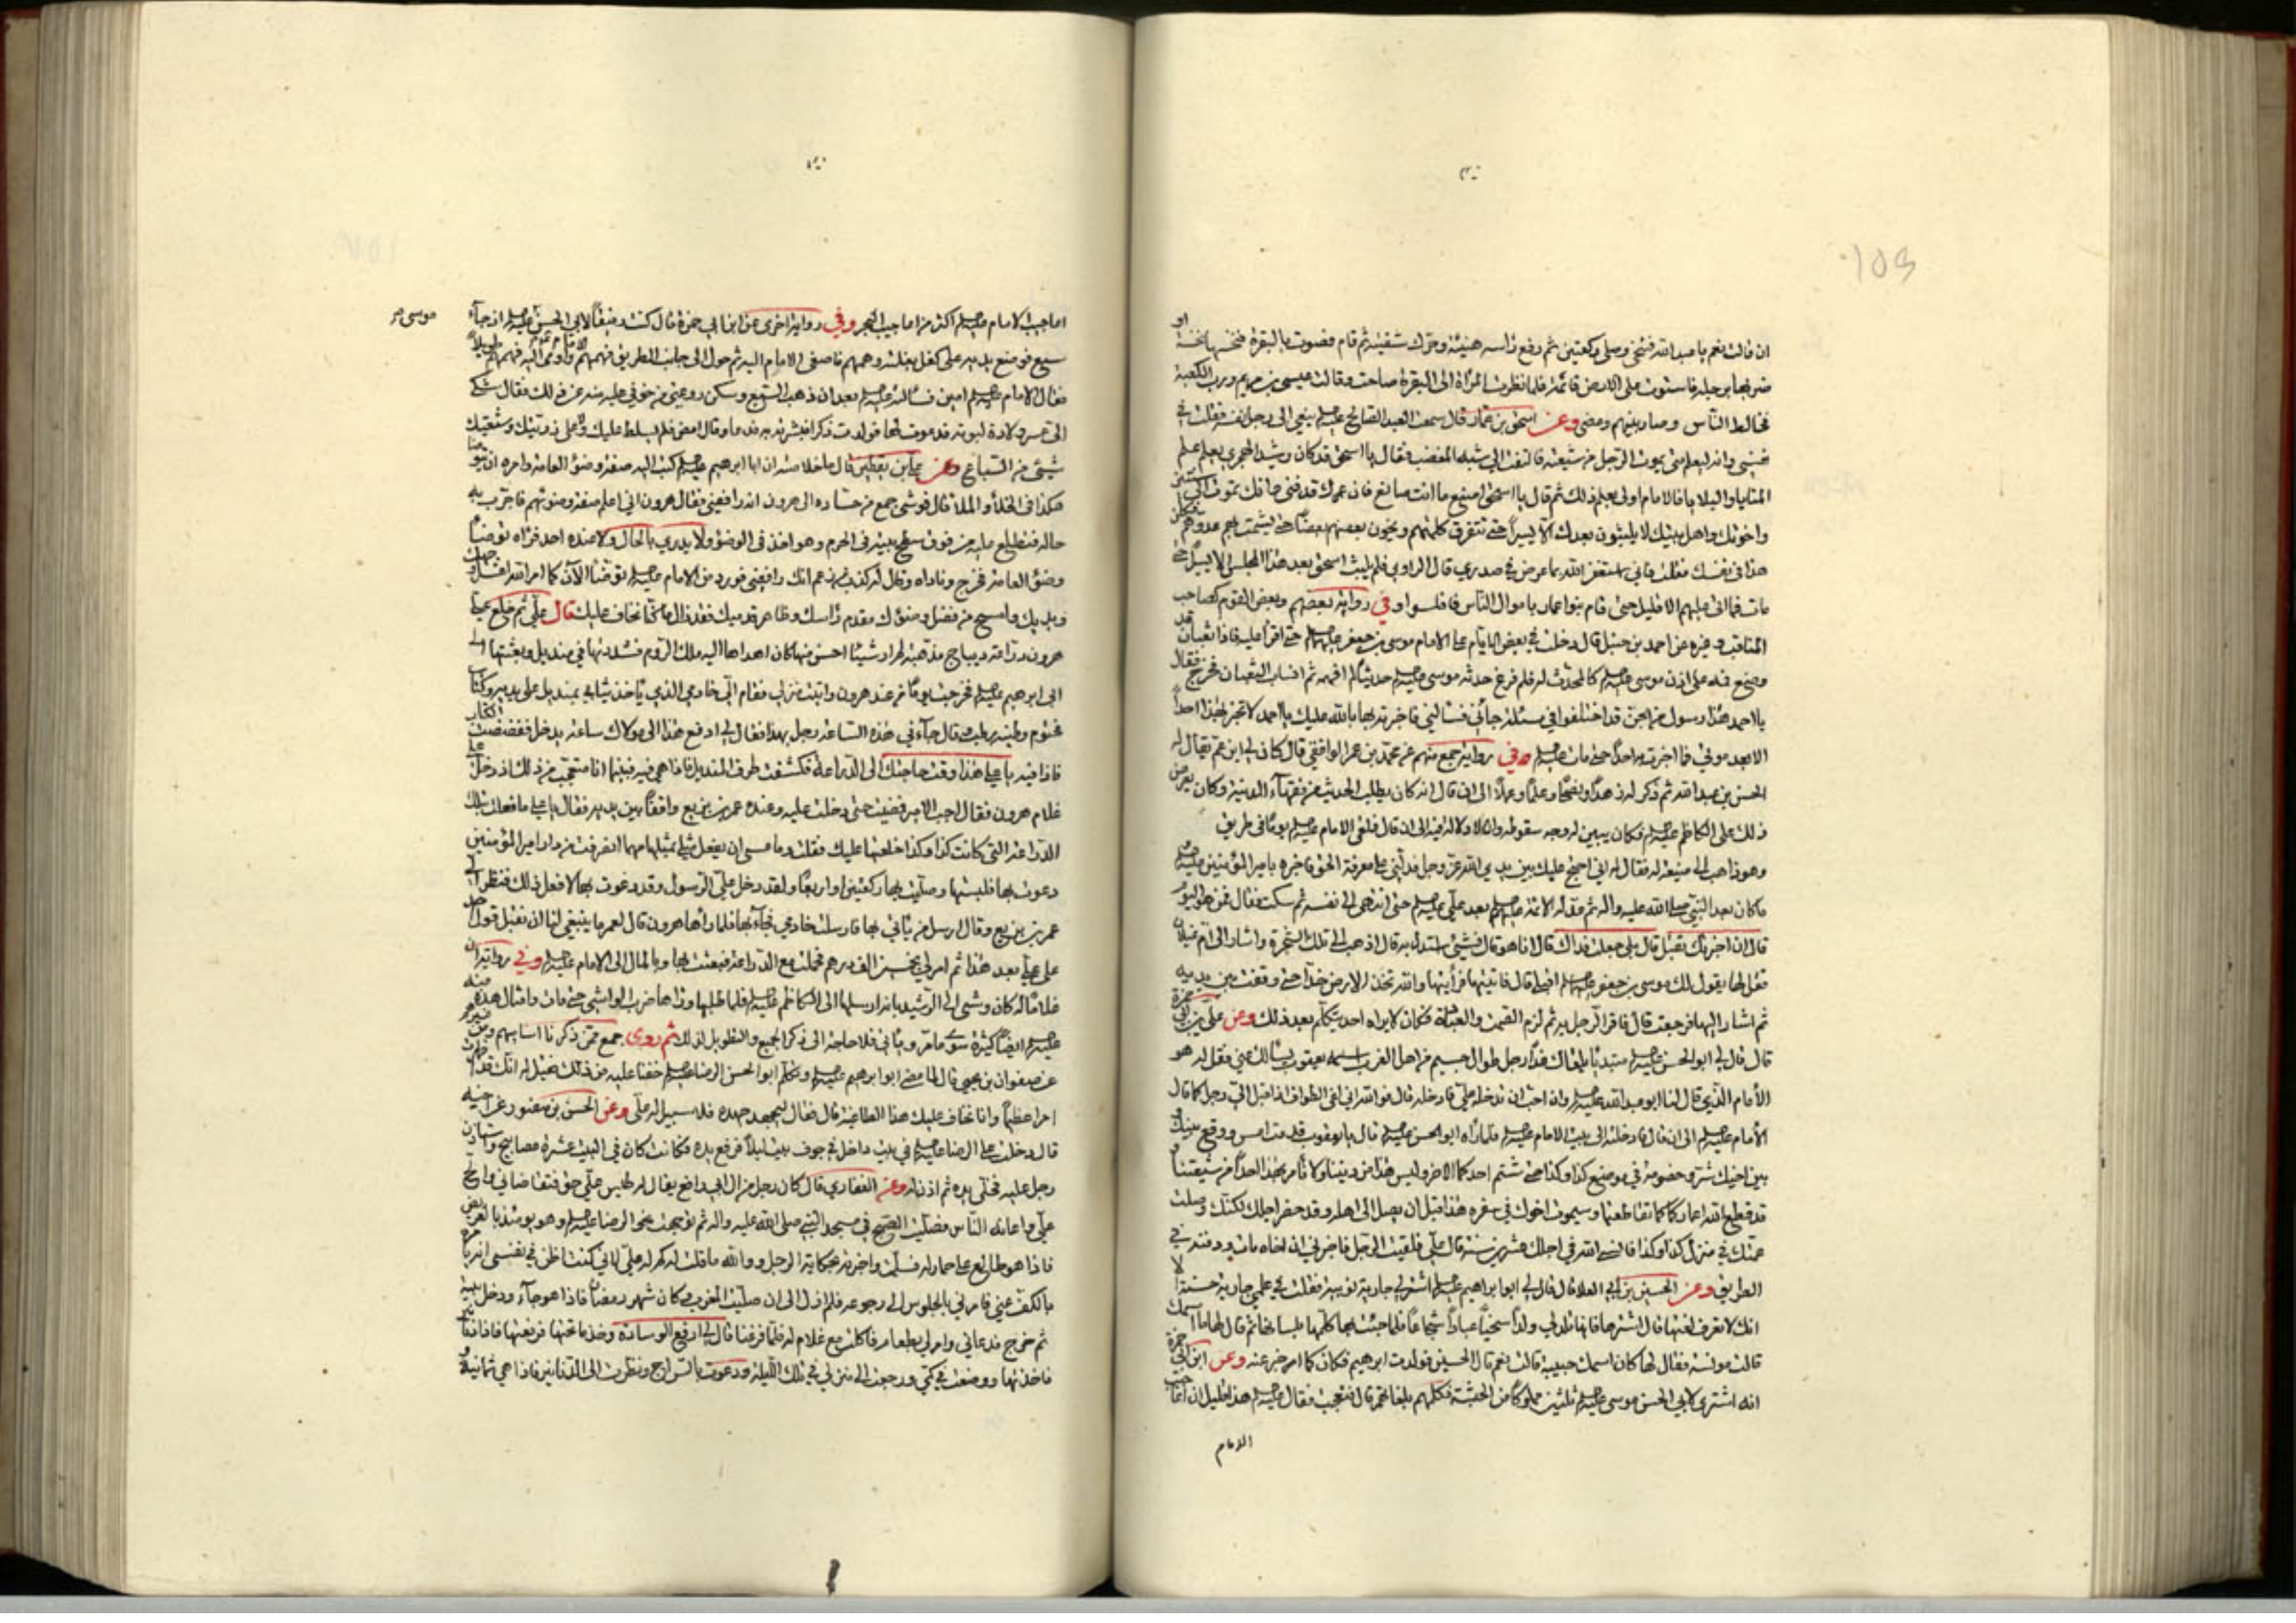 ان قالت نعم يا عبد الله فتنحى وصلى ركعتين ثم رفع راسه هنيئة وحرك شفتيه ثم قام فصوت بالبقرة فنخسها نخسة او
ضربها برجله فاستوت على الارض قائمة فلما نظرت المرأة الى البقرة صاحت وقالت عيسى بن مريم ورب الكعبة
فخالط الناس وصار بينهم ومضى وعن اسحق بن عمار قال سمعت العبد الصالح عليه السلم ينعى الى رجل نفسه فقلت في
نفسى وانه ليعلم متى يموت الرجل من شيعته فالتفت الى شبه المغضب فقال يا اسحق قد كان رشيد الهجرى يعلم علم
المنايا والبلايا فالامام اولى بعلم ذلك ثم قال يا اسحق اصنع ما انت صانع فان عمرك قد فنى وانك تموت الى سنتين
واخوتك واهل بيتك لا يلبثون بعدك الا يسيرا حتى تتفرق كلمتهم ويخون بعضهم بعضا حتى يشمت بهم عدوهم فكان
هذا في نفسك فقلت فانى استغفر الله بما عرض في صدري قال الراوي فلم يلبث اسحق بعد هذا المجلس الا يسيرا حتى
مات فما اتى عليهم الا قليل حتى قام بنوا عمار باموال الناس فافلسوا وفي رواية بعضهم وبعض القوم كصاحب
المناقب وغيره عن احمد بن حنبل قال دخلت في بعض الايام على الامام موسى بن جعفر عليهما السلم حتى اقرأ عليه فاذا ثعبان قد
وضع فمه على اذن موسى عليه السلم كالمحدث له فلما فرغ حدثه موسى عليه السلم حديثا لم افهمه ثم انساب الثعبان فخرج فقال
يا احمد هذا رسول من الجن قد اختلفوا في مسئلة جائنى فسالني فاخبرته بها بالله عليك يا احمد لا تخبر بهذا احدا
الا بعد موتي فما اخبرت به احدا حتى مات عليه السلم وفي رواية جمع منهم عن محمد بن عمر الواقفي قال كان لي ابن عم يقال له
الحسن بن عبد الله ثم ذكر له زهدا ونصحا وعلما وعملا الى ان قال انه كان يطلب الحديث من فقهاء المدينة وكان يعرض
ذلك على الكاظم عليه السلم فكان يبين له وجه سقوطه الى ان قال فلقى الامام عليه السلم يوما في طريق
وهو ذاهب الى ضيعة له فقال له اني احتج عليك بين يدي الله عز وجل فدلني على معرفة الحق فاخبره بامير المؤمنين عليه السلم
ما كان بعد النبي صلى الله عليه واله ثم عد له الائمة عليهم السلم بعد علي عليه السلم حتى انتهى الى نفسه ثم سكت فقال فمن هو اليوم
قال ان اخبرتك تقبل قال بلى جعلت فداك قال انا هو قال فشئ استدل به قال اذهب الى تلك الشجرة واشار الى ام غيلان
فقل لها يقول لك موسى بن جعفر عليه السلم اقبلى قال فاتيتها فرأيتها والله تخد الارض خدا حتى وقفت بين يديه
ثم اشار اليها فرجعت قال فاقر الرجل به ثم لزم الصمت والعبادة فكان لا يراه احد يتكلم بعد ذلك وعن علي بن ابي حمزة
قال قال لي ابو الحسن عليه السلم مبتديا يلقاك غدا رجل طوال جسيم من اهل المغرب اسمه يعقوب يسالك عني فقل له هو
الامام الذي قال لنا ابو عبد الله عليه السلم وان احب ان تدخله علي فادخله قال فوالله اني لفى الطواف اذ اقبل الي رجل كما قال
الامام عليه السلم الى ان قال فادخلته الى بيت الامام عليه السلم فلما راه ابو الحسن عليه السلم قال يا يعقوب قدمت امس ووقع بينك و
بين اخيك شر وخصومة في موضع كذا وكذا حتى شتم احدكما الاخر وليس هذا من ديننا ولا نأمر بهذا احدا من شيعتنا و
قد قطع الله اعماركما كما تقاطعتما وسيموت اخوك في سفره هذا قبل ان يصل الى اهله وقد حضر اجلك لكنك وصلت
عمتك في منزل كذا وكذا فانسى الله في اجلك عشرين سنة قال علي فلقيت الرجل فاخبرني ان اخاه مات ودفنه في
الطريق وعن الحسين بن ابي العلا قال قال لي ابو ابراهيم عليه السلم اشتر لي جارية نوبية فقلت في علمي جارية حسنة لا
انك لا تعرف لغتها قال اشترها فانها تلد لي ولدا سخيا عبادا شجاعا فلما جئت بها كلمها بلسانها ثم قال لها ما اسمك
قالت مونسة فقال لها كان اسمك حبيبة قالت نعم قال الحسين فولدت ابرهيم فكان كما امر خبر عنه وعن ابن ابي حمزة
انه اشترى لابي الحسن موسى عليه السلم ثلثين مملوكا من الحبشة فكلمهم بلغاتهم قال فتعجبت فقال عليه السلم هذا قليل ان اعاجيب
الامام
موسى
اعاجيب الامام عليه السلم اكثر من اعاجيب البحر وفي رواية اخرى عن ابن ابي حمزة قال كنت رفيقا لابي الحسن عليه السلم اذ جاء
سبع فوضع يديه على كفل بغلته وهمهم فاصغى الامام اليه ثم حول الى جانب الطريق
فقال الامام عليه السلم امين فسالته عليه السلم بعد ان ذهب السبع وسكن روعتي من خوفي عليه منه عن ذلك فقال شكى
الي عسر ولادة لبوته فدعوت لها فولدت ذكرا فبشرته به فدعا وقال امض فلا سلط عليك ولا على ذريتك وشيعتك
شئ من السباع وعن علي بن يقطين قال ما خلاصته ان ابا ابرهيم عليه السلم كتب اليه صفة وضوء العامة وامره ان يتوضا
هكذا في الخلأ والملأ قال فوشى جمع من حساده الى هرون انه رافضي فقال هرون اني اعلم صفة وضوئهم فاجرب به
حاله فتطلع عليه من فوق سطح ببيته في الحرم وهو اخذ في الوضوء ولا يدري بالحال ولا عنده احد فراه يتوضأ
وضوء العامة فخرج وناداه وقال له كذب من زعم انك رافضي فورد من الامام عليه السلم توضأ الآن كما امر الله اغسل وجهك
ويديك وامسح من فضل وضوئك مقدم راسك وظاهر قدميك فقد زال ما كنا نخاف عليك قال علي ثم خلع علي
هرون دراعة ديباج مذهبة لم ار شيئا احسن منها كان اهداها اليه ملك الروم فشددتها في منديل وبعثتها الى
ابي ابرهيم عليه السلم فخرجت يوما من عند هرون واتيت منزلي فقام الي خادمي الذي ياخذ ثيابي بمنديل على يديه وكتاب
مختوم وطينه رطب قال جاءني هذه الساعة رجل بهذا فقال لي ادفع هذا الى مولاك ساعة يدخل ففضضت الكتاب
فاذا فيه يا علي هذا وقت حاجتك الى الدراعة فكشفت طرف المنديل فاذا هي فيه فبينما انا متعجب من ذلك اذ دخل علي
غلام هرون فقال اجب الامير فمضيت حتى دخلت عليه وعنده عمر بن بزيع واقفا بين يديه فقال يا علي ما فعلت بتلك
الدراعة التي كانت كذا وكذا خلعتها عليك فقلت وما عسى ان يفعل مثلي بمثلها مهما انصرفت من دار امير المؤمنين
دعوت بها فلبستها وصليت بها ركعتين او اربعا ولقد دخل علي الرسول وقد دعوت بها لافعل ذلك فنظر الى
عمر بن بزيع وقال ارسل من ياتي بها فارسلت خادمي فجاء بها فلما راها هرون قال لعمر ما ينبغي لنا ان نقبل قول احد
على علي بعد هذا ثم امر لي بخمسين الف درهم فحملت مع الدراعة فبعثت بها وبالمال الى الامام عليه السلم وفي رواية ان
غلاما له كان وشى الى الرشيد بانه ارسلها الى الكاظم عليه السلم فلما طلبها وراها ضرب الواشي حتى مات وامثال هذه منه
عليه السلم ايضا كثيرة سوى ما مر ويأتي فلا حاجة الى ذكر الجميع والتطويل لذلك ثم روى جمع ممن ذكرنا اسماءهم
عن صفوان بن يحيى قال لما مضى ابو ابرهيم عليه السلم وتكلم ابو الحسن الرضا عليه السلم خفنا عليه من ذلك فقيل له انك قد اظهرت
امرا عظيما وانا نخاف عليك هذا الطاغية قال فقال ليجهد جهده فلا سبيل له علي وعن الحسن بن منصور عن اخيه
قال دخلت على الرضا عليه السلم في بيت داخل في جوف بيت ليلا فرفع يده فكانت كان في البيت عشرة مصابيح واستاذن
رجل عليه فخلى يده ثم اذن له وعن الغفاري قال كان رجل من ال ابي رافع يقال له طيس علي حق فتقاضاني والح
علي واعانه الناس فصليت الصبح في مسجد النبي صلى الله عليه واله ثم توجهت نحو الرضا عليه السلم وهو يومئذ بالعريض
فاذا هو طالع على حمار له فسلمت واخبرته بحكاية الرجل ووالله ما قلت له كم له علي لاني كنت اظن في نفسى انه يامره
بالكف عني فامرني بالجلوس الى رجوعه فلم ازل الى ان صليت المغرب وكان شهر رمضان فاذا هو جاء ودخل بيته
ثم خرج فدعاني وامر لي بطعام فاكلت مع غلام له فلما فرغنا قال لي ارفع الوسادة وخذ ما تحتها فرفعتها فاذا دنانير
فاخذتها ووضعت في كمي ورجعت الى منزلي في تلك الليلة ودعوت بالسراج ونظرت الى الدنانير فاذا هي ثمانية و